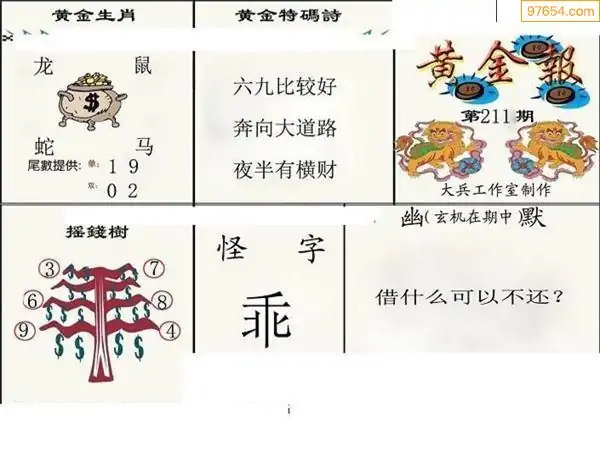 97654.com
黄金生肖
龙 鼠
蛇 马
尾數提供: 单: 1 9
双: 0 2
黄金特碼詩
六九比较好
奔向大道路
夜半有横财
黄金報
第211期
大兵工作室制作
摇錢樹
③ ⑦
⑥ ⑧
⑨ ④
$ $ $ $ $ $ $ $
怪 字
乖
幽(玄机在期中)默
借什么可以不还?
i